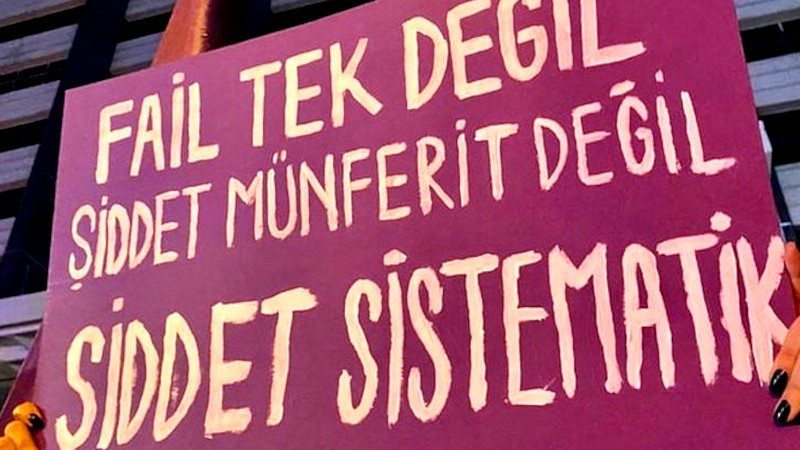 FAİL TEK DEĞİL
ŞİDDET MÜNFERİT DEĞİL
ŞİDDET SİSTEMATİK